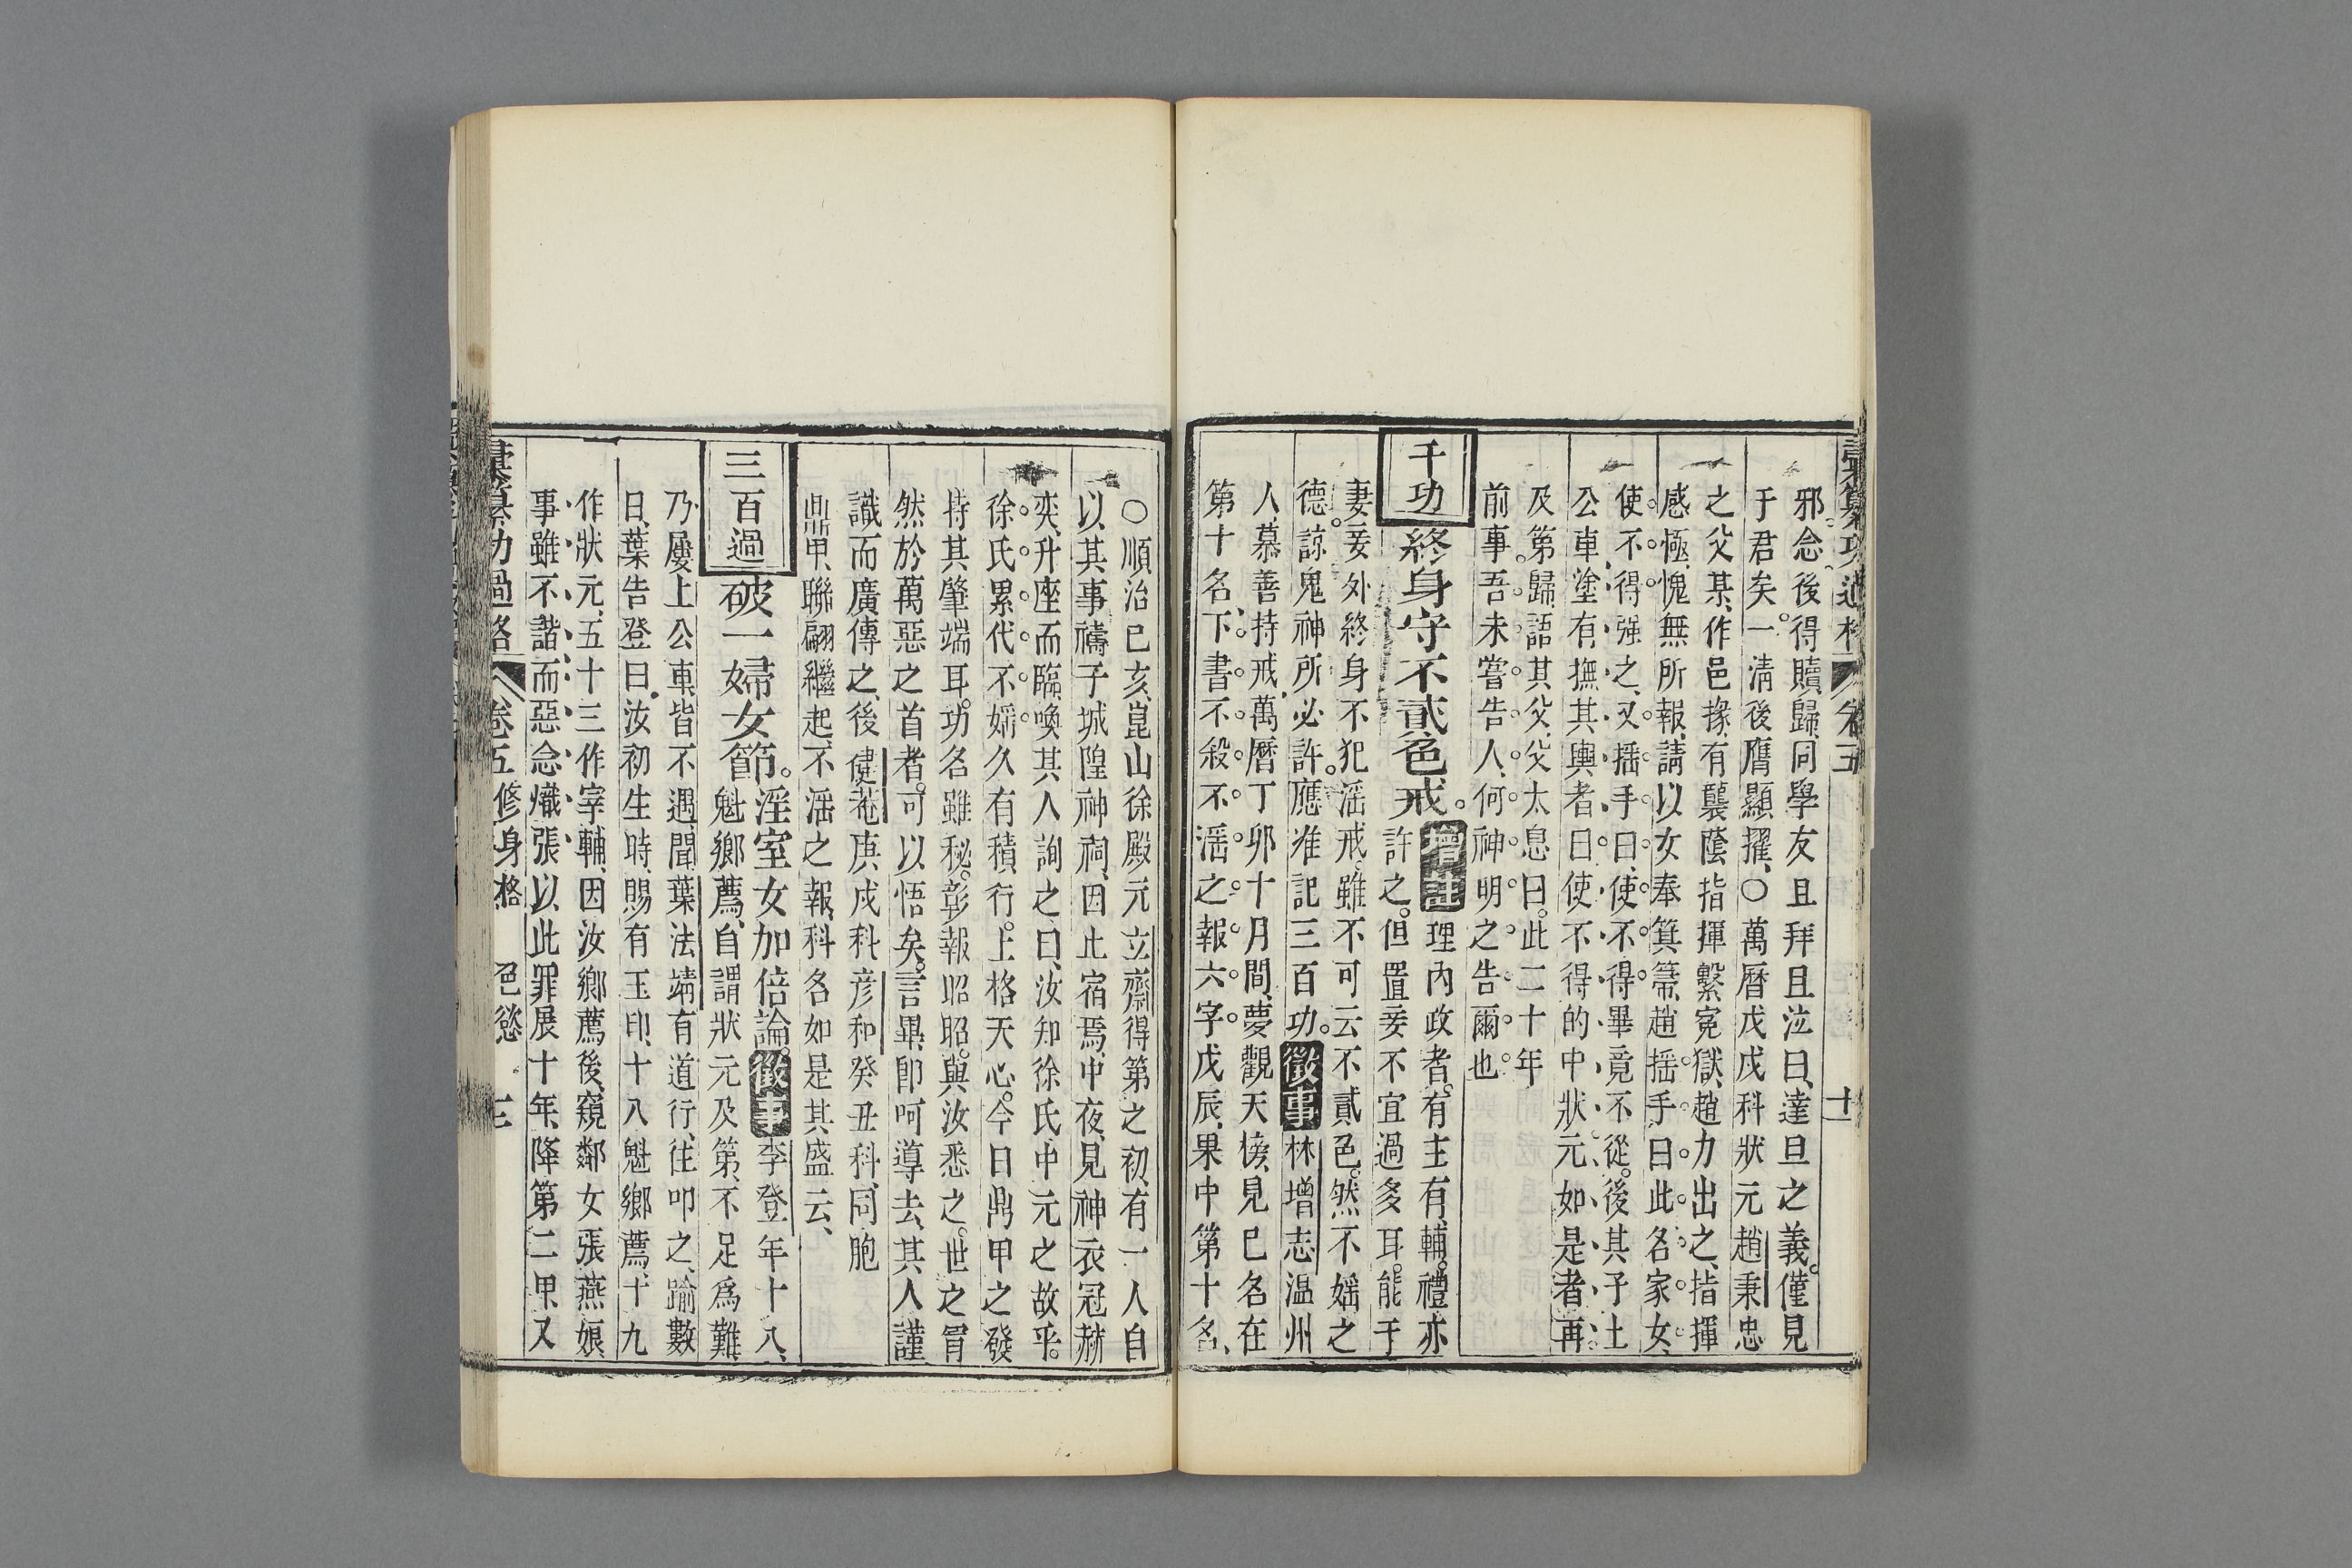 邪念後得贖歸同學友且拜且泣曰達旦之義僅見
于君矣一淸後膺顯擢○萬曆戊戌科狀元趙秉忠
之父某作邑掾有襲蔭指揮繫寃獄趙力出之指揮
感極愧無所報請以女奉箕箒趙揺手曰此名家女
使不得强之又揺手曰使不得畢竟不從後其子上
公車塗有撫其輿者曰使不得的中狀元如是者再
及第歸語其父父太息曰此二十年
前事吾未嘗告人何神明之告爾也
千功
終身守不貳色戒
增註
理內政者有主有輔禮亦
許之但置妾不宜過多耳能于
妻妾外終身不犯滛戒雖不可云不貳色然不婬之
德諒鬼神所必許應准記三百功
徵事
林增志溫州
人慕善持戒萬曆丁卯十月間夢觀天榜見已名在
第十名下書不殺不滛之報六字戊辰果中第十名
○順治已亥崑山徐殿元立齋得第之初有一人自
以其事禱于城隍神祠因止宿焉中夜見神衣冠赫
奕升座而臨喚其人詢之曰汝知徐氏中元之故乎
徐氏累代不婬久有積行上格天心今日鼎甲之發
持其肇端耳功名雖秘彰報昭昭與汝悉之世之冐
然於萬惡之首者可以悟矣言畢卽呵導去其人謹
識而廣傳之後健菴庚戌科彥和癸丑科同胞
鼎甲聯翩繼起不滛之報科名如是其盛云
三百過
破一婦女節
淫室女加倍論
徵事
李登年十八
魁鄉薦自謂狀元及第不足爲難
乃屢上公車皆不遇聞葉法靖有道行往叩之踰數
日葉告登曰汝初生時賜有玉印十八魁鄉薦十九
作狀元五十三作宰輔因汝鄉薦後窺鄰女張燕娘
事雖不諧而惡念熾張以此罪展十年降第二甲又
彙纂功過格
卷五修身格
色慾